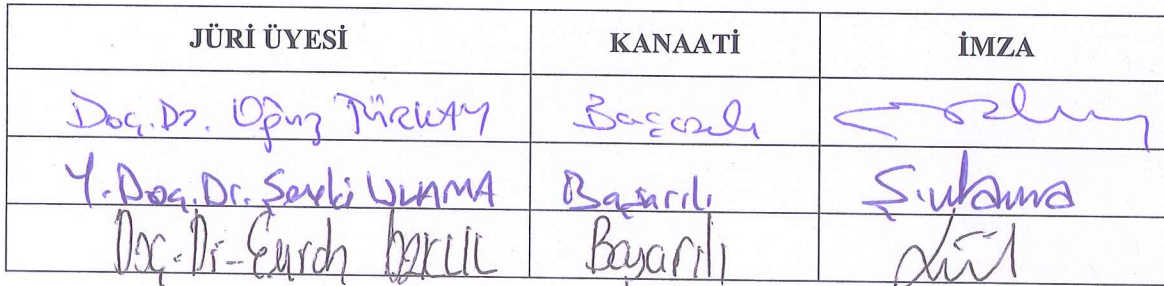 JÜRİ ÜYESİ KANAATİ İMZA
Doç.Dr. Oğuz TÜRKAY Başarılı
Y.Doç.Dr. Şevki ULAMA Başarılı Ş.ulama
Doç.Dr. Başarılı